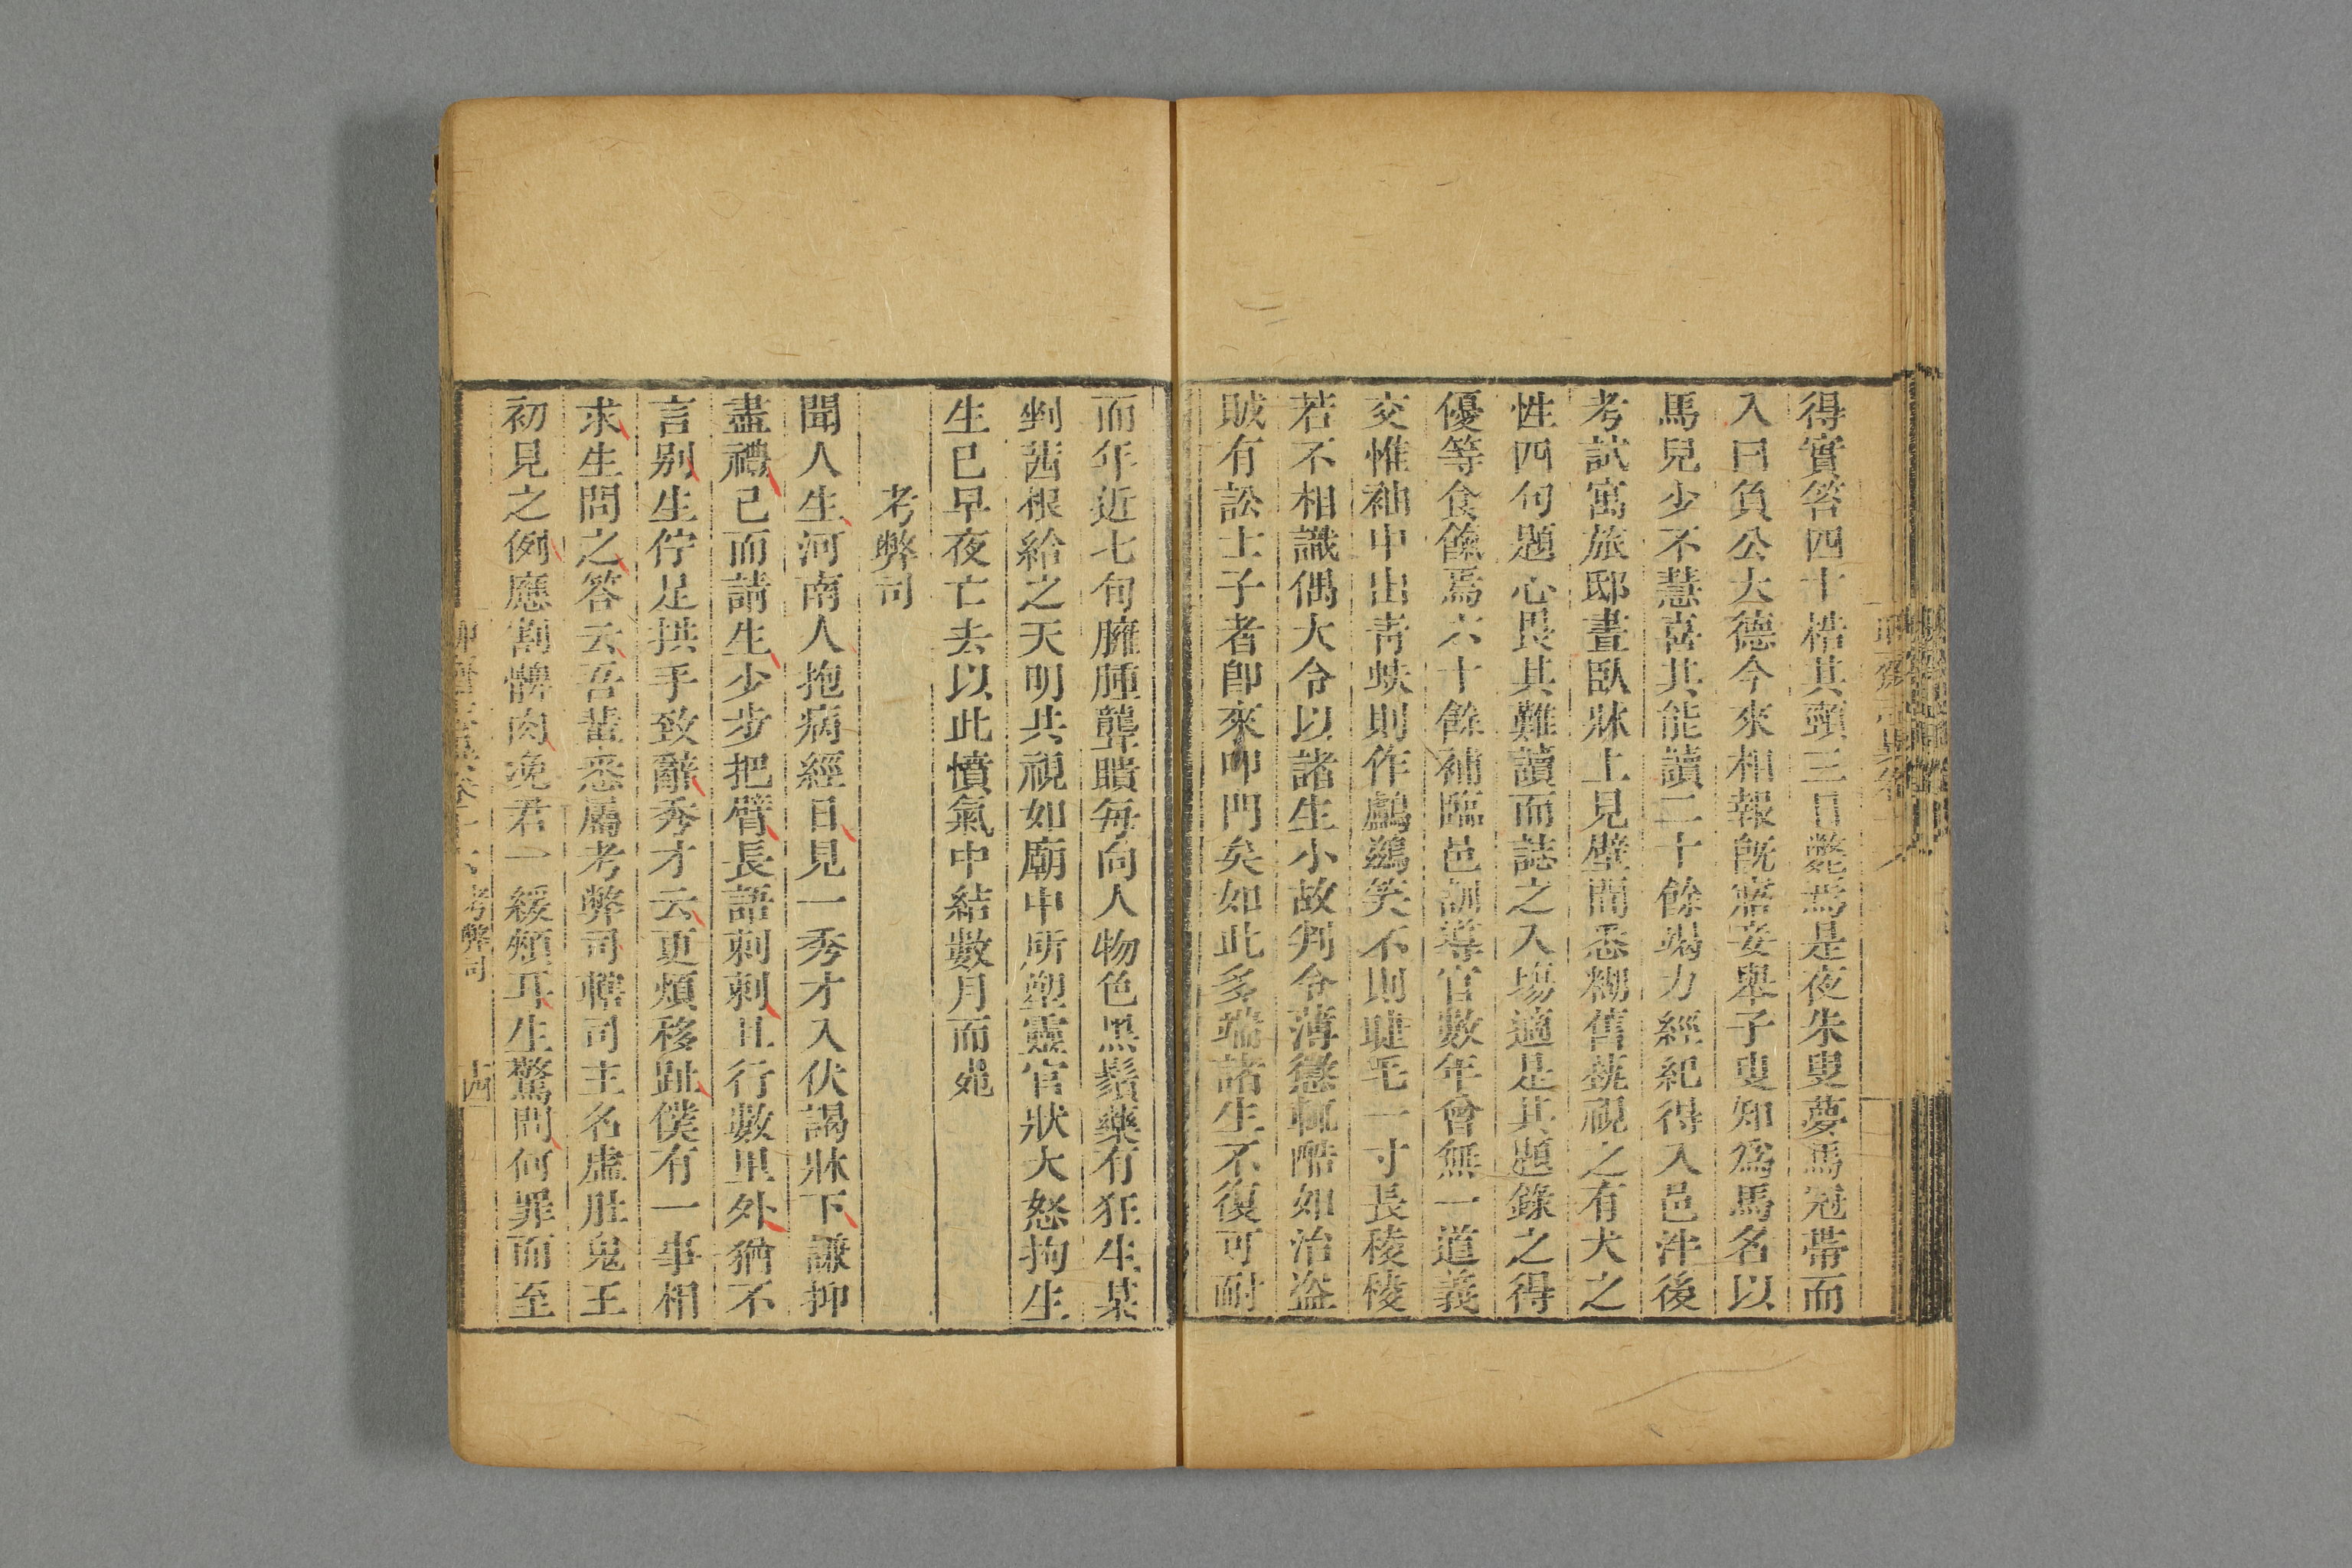 得實答四十梏其頸三日斃焉是夜朱叟夢馬冠帶而
入曰負公大德今來相報旣寤妾舉子叟知爲馬名以
馬兒少不慧喜其能讀二十餘竭力經紀得入邑泮後
考試寓旅邸晝臥牀上見壁間悉糊舊藝視之有犬之
性四句題心畏其難讀而誌之入場適是其題錄之得
優等食餼焉六十餘補臨邑訓導官數年曾無一道義
交惟袖中出靑蚨則作鸕鷀笑不則睫毛一寸長稜稜
若不相識偶大令以諸生小故判令薄懲輒酷如治盜
賊有訟士子者卽來叩門矣如此多端諸生不復可耐
而年近七旬臃腫聾瞶每向人物色黑鬚藥有狂生某
剉茜根給之天明共視如廟中所塑靈官狀大怒拘生
生已早夜亡去以此憤氣中結數月而死
考弊司
聞人生河南人抱病經日見一秀才入伏謁牀下謙抑
盡禮已而請生少步把臂長語刺刺且行數里外猶不
言别生佇足拱手致辭秀才云更煩移趾僕有一事相
求生問之答云吾輩悉屬考弊司司主名虛肚鬼王
初見之例應割髀肉浼君一緩頰耳生驚問何罪而至
考弊司 十四